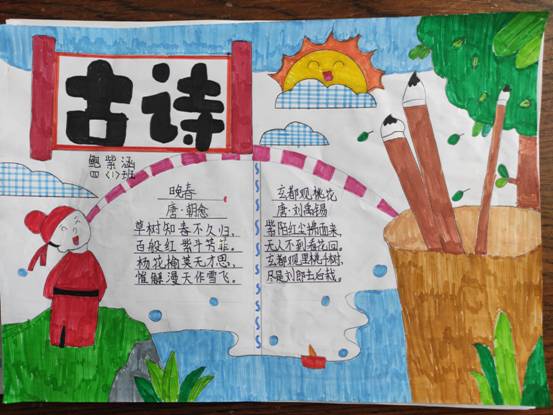 古诗
鲍紫涵
四〈1〉班
晚春
唐·朝愈
草树知春不久归,
百般红紫斗芳菲。
杨花榆荚无才思,
惟解漫天作雪飞。
玄都观桃花
唐·刘禹锡
紫陌红尘拂面来,
无人不道看花回。
玄都观里桃千树,
尽是刘郎去后栽。